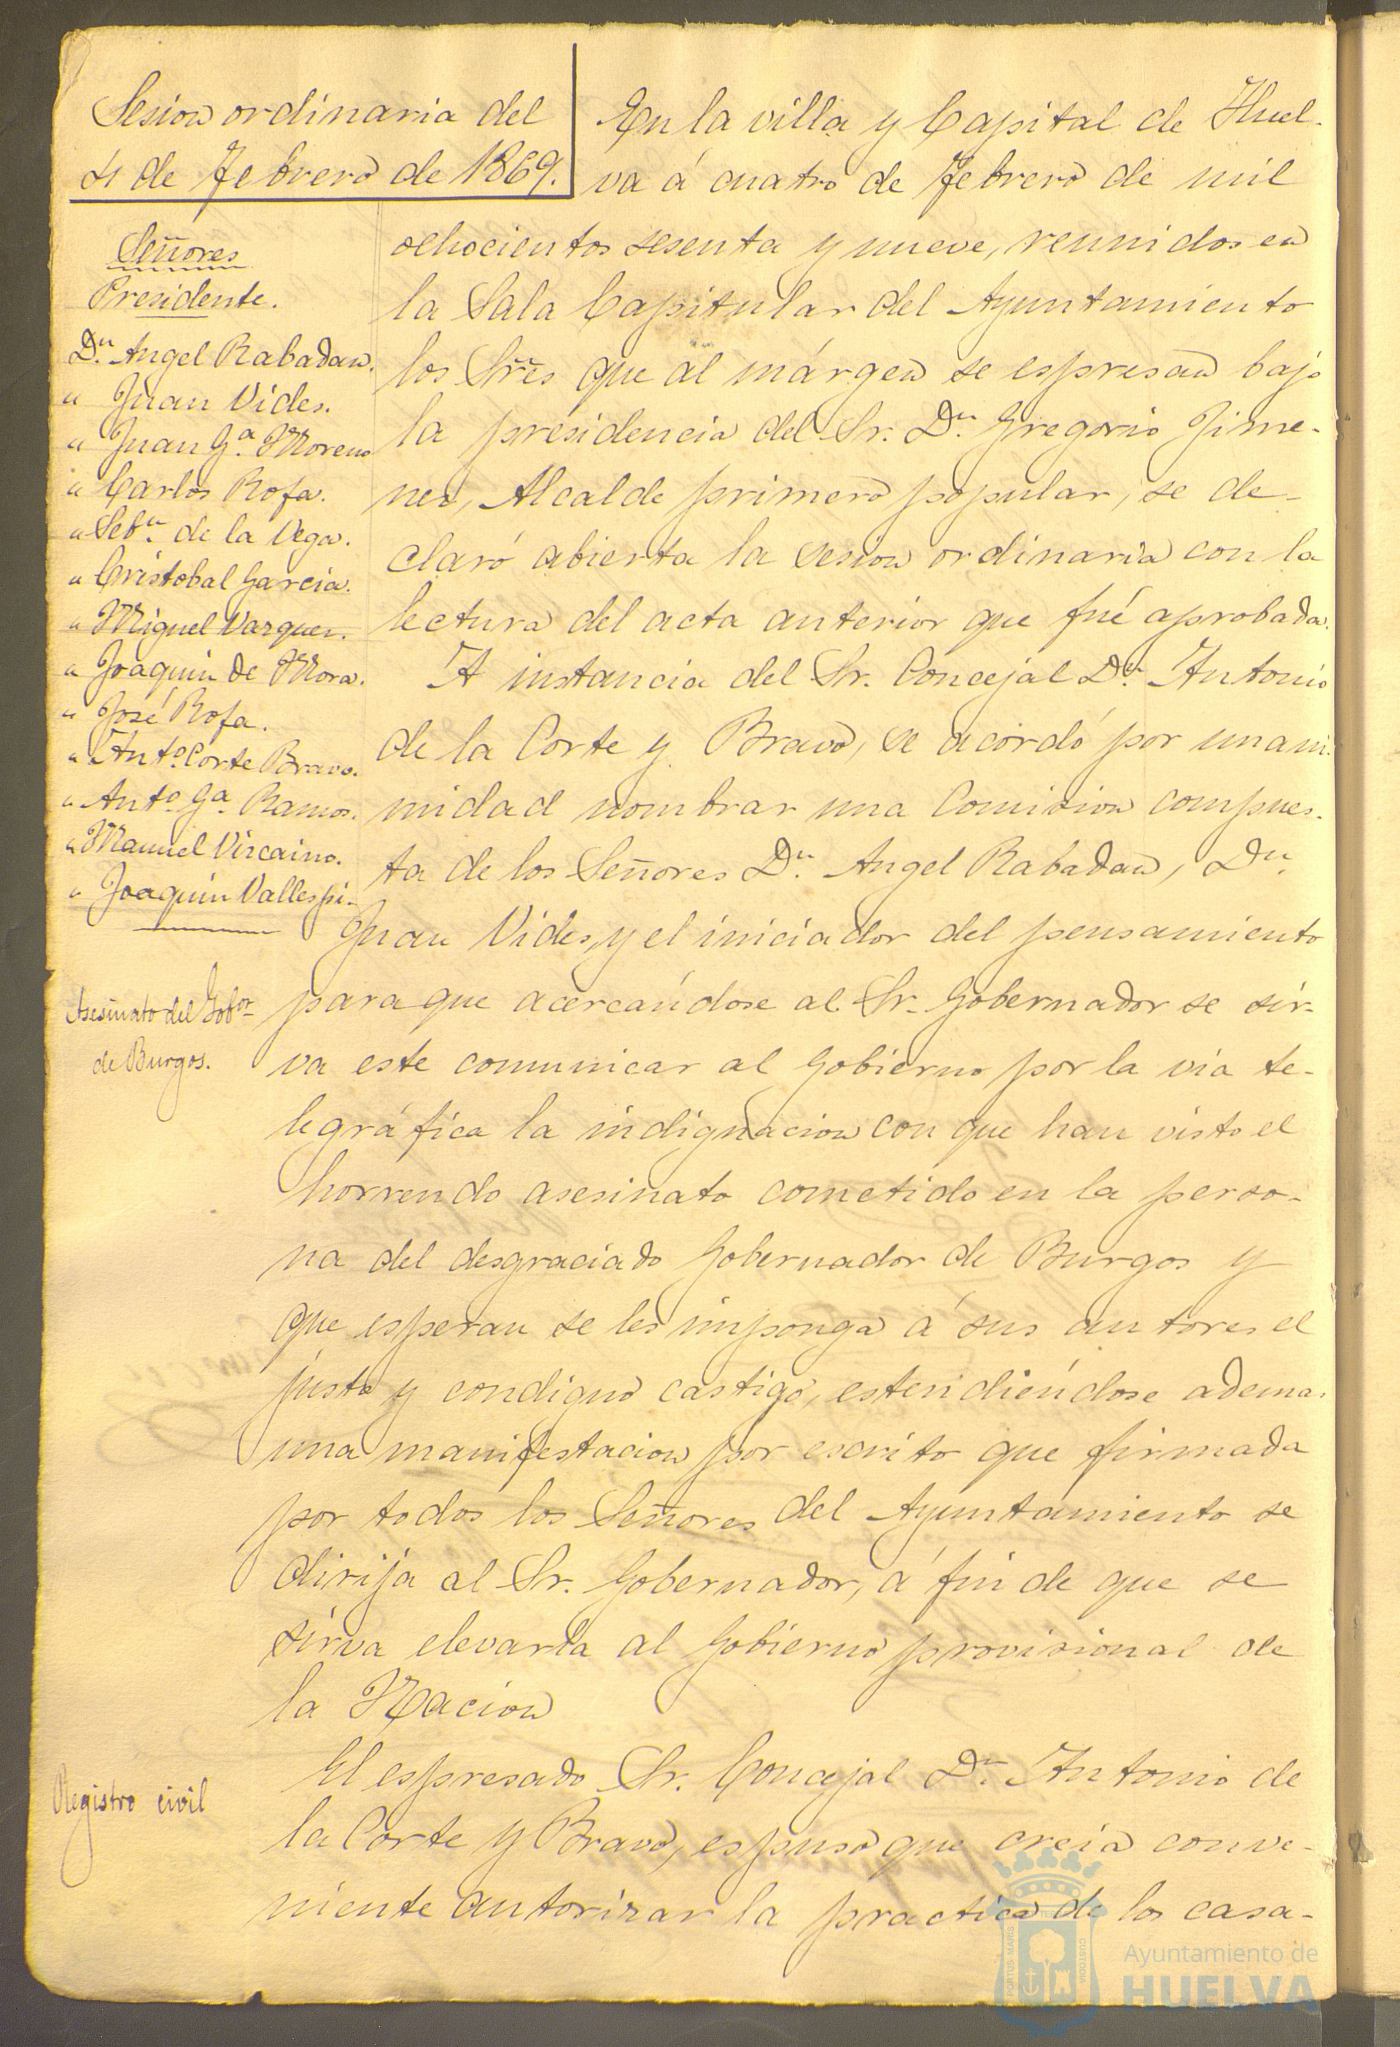 Sesion ordinaria del
4 de Febrero de 1869.
Señores
Presidente.
Dn. Angel Rabadan.
" Juan Vides.
" Juan Ga. Moreno
" Carlos Rofa.
" Sebn. de la Vega.
" Cristobal Garcia.
" Miguel Vazquez.
" Joaquin de Mora.
" José Rofa.
" Anto. Corte Bravo.
" Anto. Ga. Ramos.
" Manuel Viscaino.
" Joaquin Vallespi.
En la villa y Capital de Huel-
va á cuatro de Febrero de mil
ochocientos sesenta y nueve, reunidos en
la Sala Capitular del Ayuntamiento
los Sres que al márgen se espresan bajo
la presidencia del Sr. Dn. Gregorio Jime-
nez, Alcalde primero popular, se de-
claró abierta la sesion ordinaria con la
lectura del acta anterior que fué aprobada.
A instancia del Sr. Concejal Dn. Antonio
de la Corte y Bravo, se acordó por unani-
midad nombrar una Comision compues-
ta de los Señores Dn. Angel Rabadan, Dn.
Juan Vides, y el iniciador del pensamiento
Asesinato del Gobor
de Burgos.
para que acercándose al Sr. Gobernador se sir-
va este comunicar al Gobierno por la via te-
legráfica la indignacion con que han visto el
horrendo asesinato cometido en la perso-
na del desgraciado Gobernador de Burgos y
que esperan se les imponga á sus autores el
justo y condigno castigo, estendiéndose ademas
una manifestacion por escrito que firmada
por todos los Señores del Ayuntamiento se
dirija al Sr. Gobernador, á fin de que se
sirva elevarla al Gobierno provisional de
la Nacion
Registro civil
El espresado Sr. Concejal Dn. Antonio de
la Corte y Bravo, espuso que creia conve-
niente autorizar la practica de los casa-
PORTUS MARIS
CUSTODIA
Ayuntamiento de
HUELVA